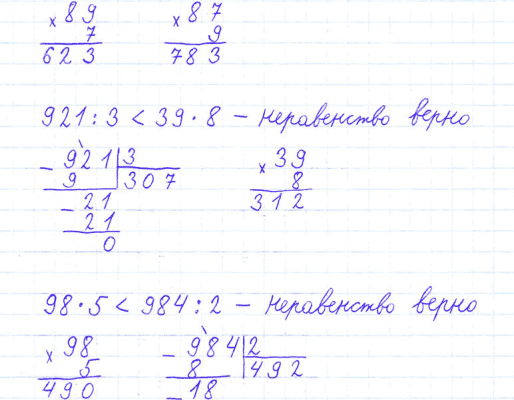 × 89 × 87
7 9
623 783
921 : 3 < 39 · 8 – неравенство верно
− 921 | 3 × 39
9 307 8
− 21 312
21
0
98 · 5 < 984 : 2 – неравенство верно
× 98 − 984 | 2
5 8 492
490 − 18